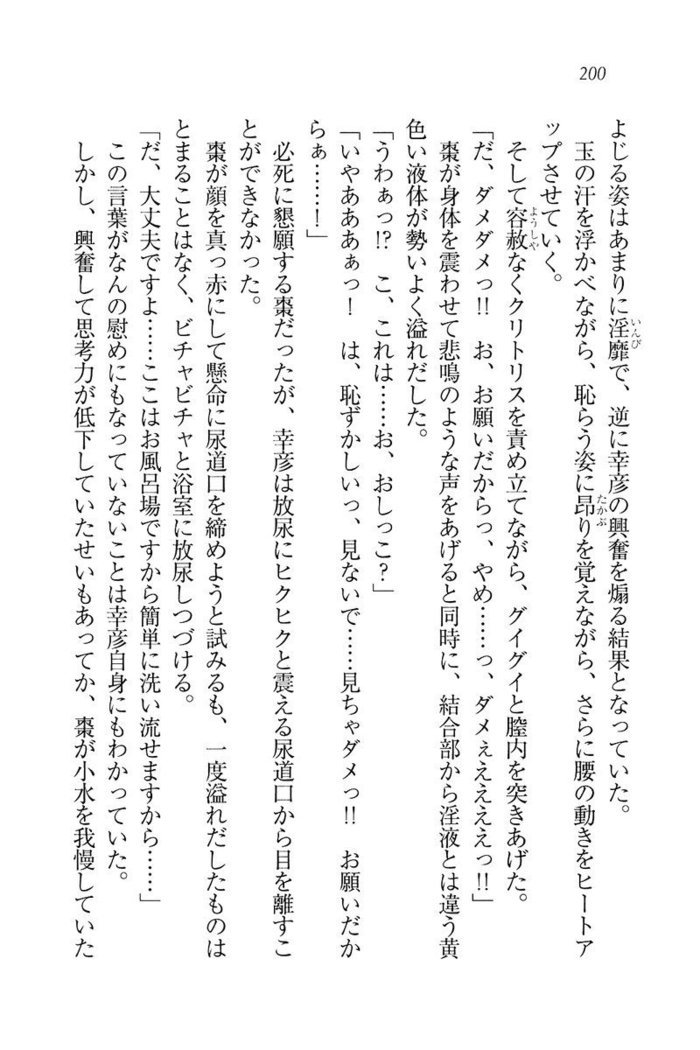 200
よじる姿はあまりに淫靡で、逆に幸彦の興奮を煽る結果となっていた。
玉の汗を浮かべながら、恥らう姿に昂りを覚えながら、さらに腰の動きをヒートア
ップさせていく。
そして容赦なくクリトリスを責め立てながら、グイグイと膣内を突きあげた。
「だ、ダメダメっ!! お、お願いだからっ、やめ……っ、ダメぇえええぇっ!!」
棗が身体を震わせて悲鳴のような声をあげると同時に、結合部から淫液とは違う黄
色い液体が勢いよく溢れだした。
「うわぁっ!? こ、これは……お、おしっこ?」
「いやあああぁっ! は、恥ずかしいっ、見ないで……見ちゃダメっ!! お願いだか
らぁ……!」
必死に懇願する棗だったが、幸彦は放尿にヒクヒクと震える尿道口から目を離すこ
とができなかった。
棗が顔を真っ赤にして懸命に尿道口を締めようと試みるも、一度溢れだしたものは
とまることはなく、ビチャビチャと浴室に放尿しつづける。
「だ、大丈夫ですよ……ここはお風呂場ですから簡単に洗い流せますから……」
この言葉がなんの慰めにもなっていないことは幸彦自身にもわかっていた。
しかし、興奮して思考力が低下していたせいもあってか、棗が小水を我慢していた